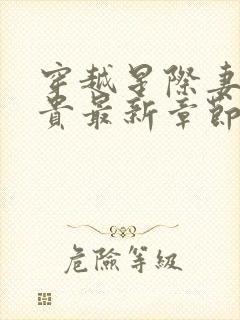 穿越星際妻
貴最新章節
危險等級